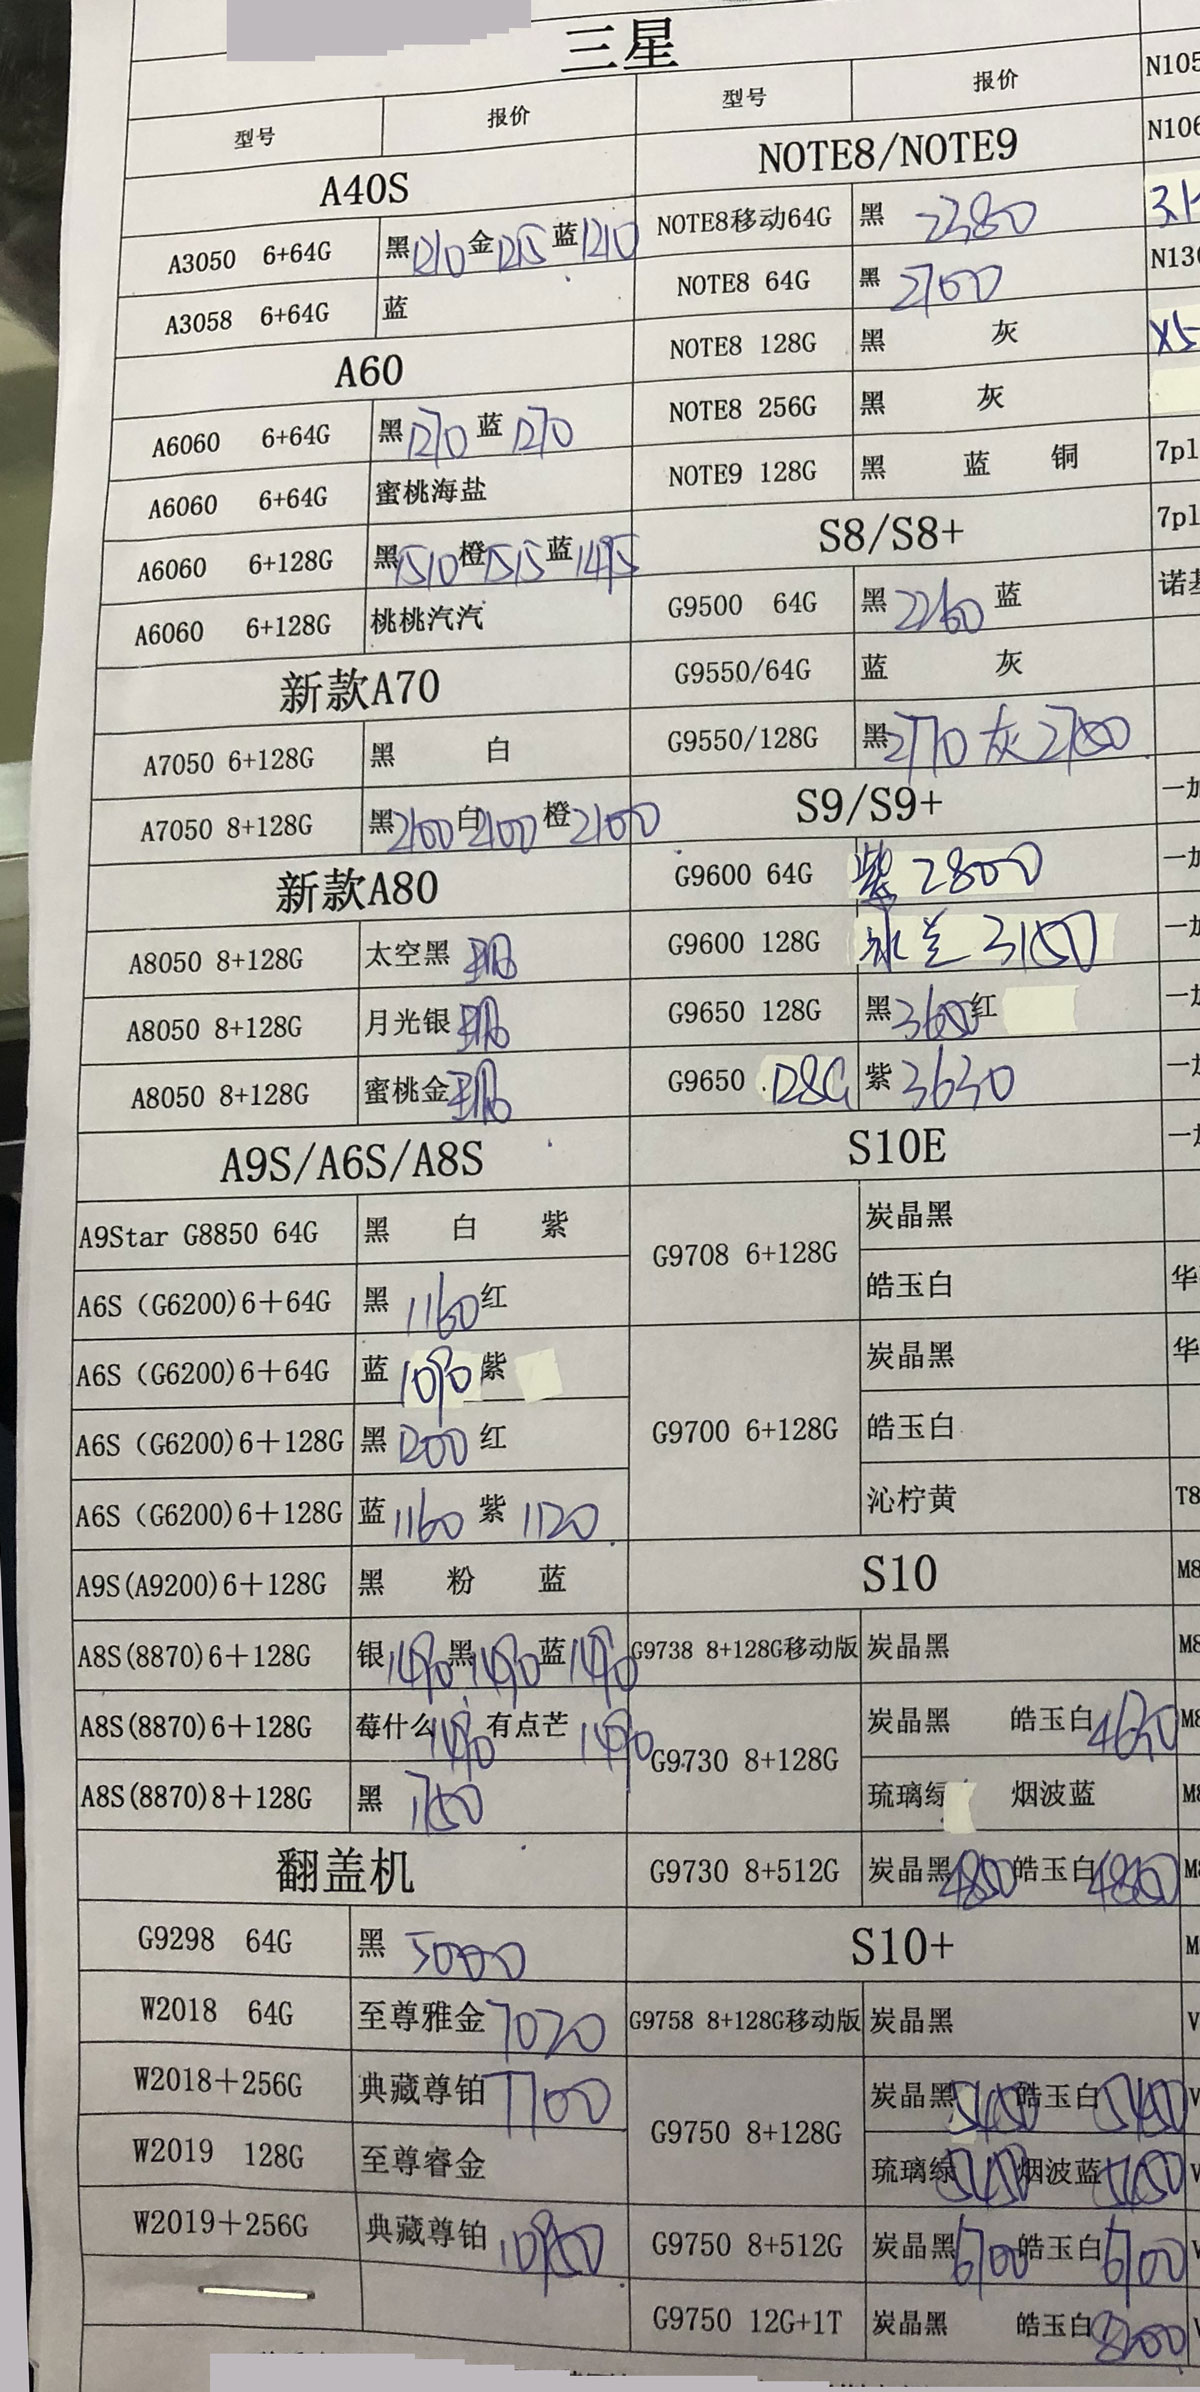 三星
型号 报价
A40S
A3050 6+64G 黑1210 金1215 蓝1210
A3058 6+64G 蓝
A60
A6060 6+64G 黑1270 蓝1270
A6060 6+64G 蜜桃海盐
A6060 6+128G 黑1510 橙1515 蓝1495
A6060 6+128G 桃桃汽汽
新款A70
A7050 6+128G 黑 白
A7050 8+128G 黑2100 白2100 橙2100
新款A80
A8050 8+128G 太空黑
A8050 8+128G 月光银
A8050 8+128G 蜜桃金
A9S/A6S/A8S
A9Star G8850 64G 黑 白 紫
A6S (G6200)6+64G 黑 1160 红
A6S (G6200)6+64G 蓝 1090 紫
A6S (G6200)6+128G 黑 1200 红
A6S (G6200)6+128G 蓝 1160 紫 1120
A9S(A9200)6+128G 黑 粉 蓝
A8S(8870)6+128G 银1490 黑1490 蓝1490
A8S(8870)6+128G 莓什么1490 有点芒 1490
A8S(8870)8+128G 黑 1750
翻盖机
G9298 64G 黑 5000
W2018 64G 至尊雅金 7020
W2018+256G 典藏尊铂 7700
W2019 128G 至尊睿金
W2019+256G 典藏尊铂 10950
型号 报价
NOTE8/NOTE9
NOTE8移动64G 黑 2380
NOTE8 64G 黑 2700
NOTE8 128G 黑 灰
NOTE8 256G 黑 灰
NOTE9 128G 黑 蓝 铜
S8/S8+
G9500 64G 黑 2260 蓝
G9550/64G 蓝 灰
G9550/128G 黑2770 灰 2750
S9/S9+
G9600 64G 紫 2800
G9600 128G 冰兰 3150
G9650 128G 黑3600 红
G9650 128G 紫 3630
S10E
G9708 6+128G 炭晶黑
皓玉白
G9700 6+128G 炭晶黑
皓玉白
沁柠黄
S10
G9738 8+128G移动版 炭晶黑
G9730 8+128G 炭晶黑 皓玉白
琉璃绿 烟波蓝
G9730 8+512G 炭晶黑4850 皓玉白4850
S10+
G9758 8+128G移动版 炭晶黑
G9750 8+128G 炭晶黑5450 皓玉白5450
琉璃绿5450 烟波蓝5450
G9750 8+512G 炭晶黑6700 皓玉白6700
G9750 12G+1T 炭晶黑 皓玉白8200
N105
N106
N130
X5
7pl
7pl
诺基
一加
一加
一加
一加
一加
一加
华
华
T8
M8
M8
M8
M8
M8
M
V
V
V
V
V